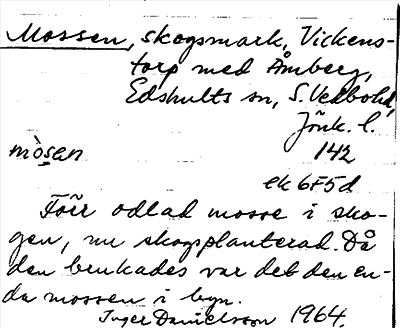 Mossen, skogsmark, Vickens-
torp med Åmberg,
Edshults sn, S. Vedbohd,
Jönk. l.
mòsen 142
ek 6F5d
Förr odlad mosse i sko-
gen, nu skogsplanterad. Då
den brukades var det den en-
da mossen i byn.
Inger Danielsson 1964.